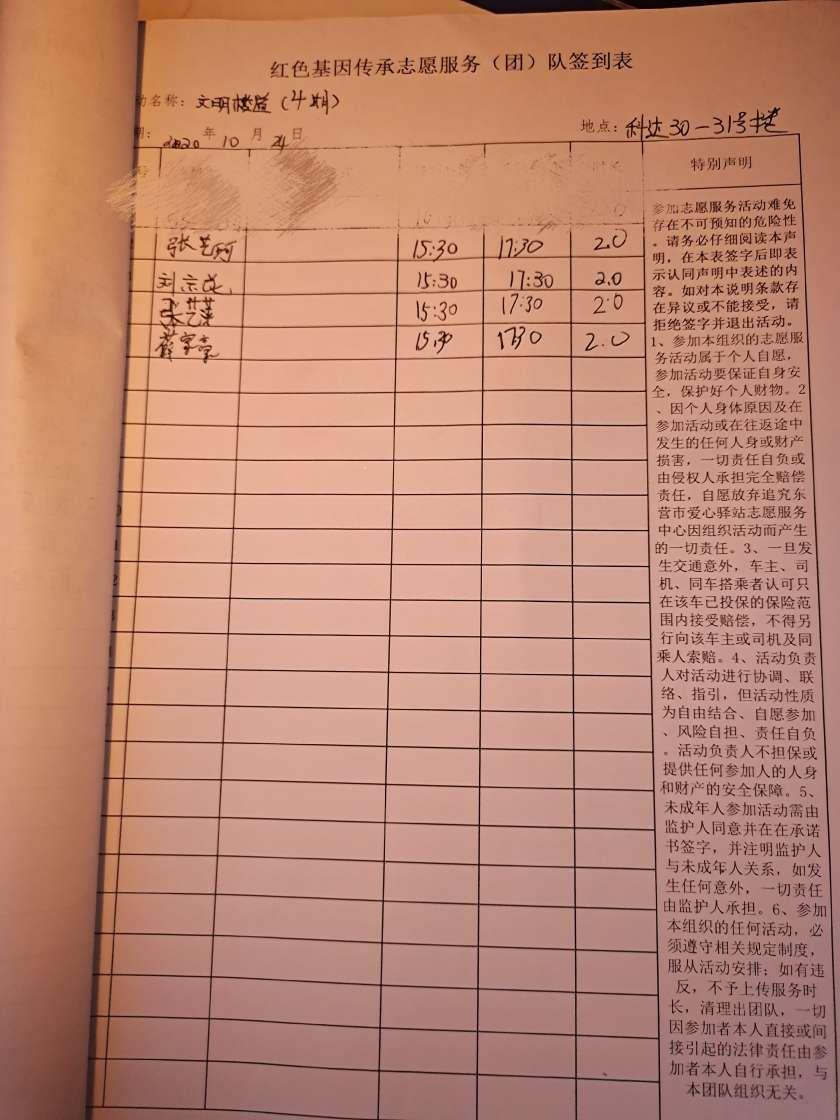 红色基因传承志愿服务（团）队签到表
动名称：文明楼道（4期）
期：2020年10月24日
地点：科达30－31号楼
号 时长 特别声明
15:30 17:30 2.0
刘宗 15:30 17:30 2.0
张艺 15:30 17:30 2.0
薛 15:30 1730 2.0
参加志愿服务活动难免
存在不可预知的危险性
。请务必仔细阅读本声
明，在本表签字后即表
示认同声明中表述的内
容。如对本说明条款存
在异议或不能接受，请
拒绝签字并退出活动。
1、参加本组织的志愿服
务活动属于个人自愿，
参加活动要保证自身安
全，保护好个人财物。2
、因个人身体原因及在
参加活动或在往返途中
发生的任何人身或财产
损害，一切责任自负或
由侵权人承担完全赔偿
责任，自愿放弃追究东
营市爱心驿站志愿服务
中心因组织活动而产生
的一切责任。3、一旦发
生交通意外，车主、司
机、同车搭乘者认可只
在该车已投保的保险范
围内接受赔偿，不得另
行向该车主或司机及同
乘人索赔。4、活动负责
人对活动进行协调、联
络、指引，但活动性质
为自由结合、自愿参加
、风险自担、责任自负
。活动负责人不担保或
提供任何参加人的人身
和财产的安全保障。5、
未成年人参加活动需由
监护人同意并在在承诺
书签字，并注明监护人
与未成年人关系，如发
生任何意外，一切责任
由监护人承担。6、参加
本组织的任何活动，必
须遵守相关规定制度，
服从活动安排；如有违
反，不予上传服务时
长，清理出团队，一切
因参加者本人直接或间
接引起的法律责任由参
加者本人自行承担，与
本团队组织无关。